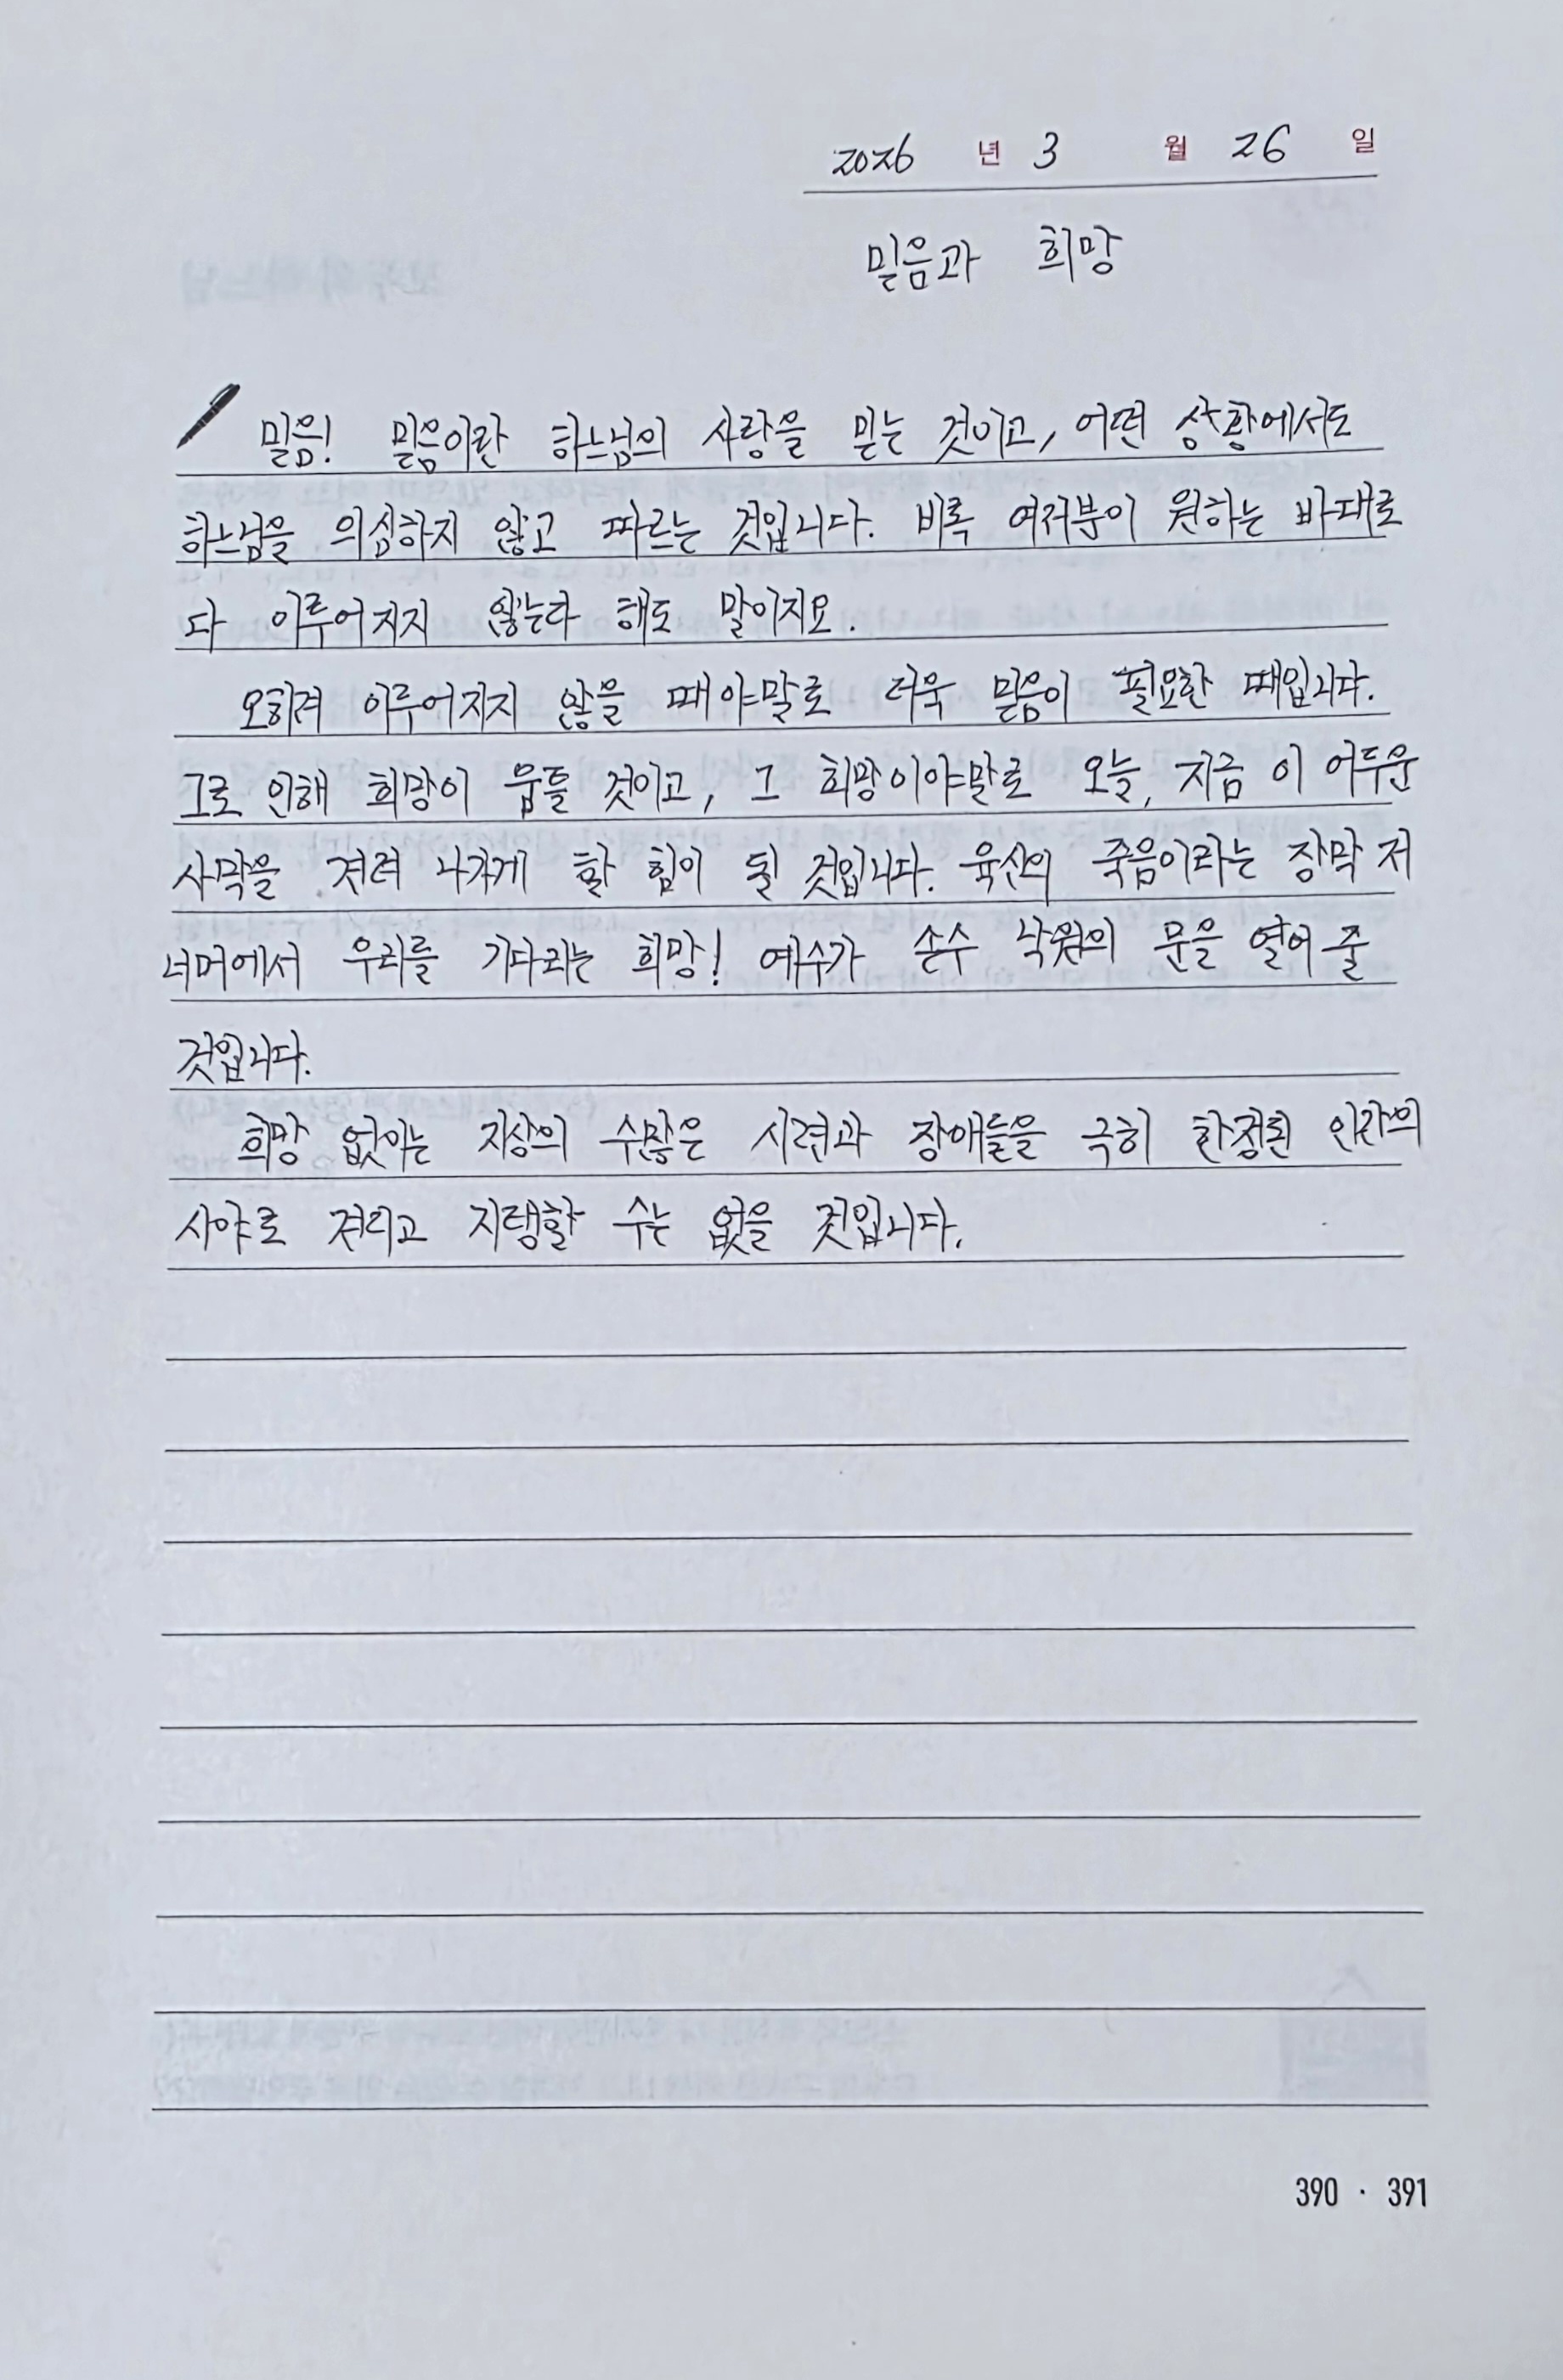 2026 년 3 월 26 일
믿음과 희망
믿음! 믿음이란 하느님의 사랑을 믿는 것이고, 어떤 상황에서도
하느님을 의심하지 않고 따르는 것입니다. 비록 여러분이 원하는 바대로
다 이루어지지 않는다 해도 말이지요.
오히려 이루어지지 않을 때야말로 더욱 믿음이 필요한 때입니다.
그로 인해 희망이 움틀 것이고, 그 희망이야말로 오늘, 지금 이 어두운
사막을 견뎌 나가게 할 힘이 될 것입니다. 육신의 죽음이라는 장막 저
너머에서 우리를 기다리는 희망! 예수가 손수 낙원의 문을 열어 줄
것입니다.
희망 없이는 지상의 수많은 시련과 장애들을 극히 한정된 인간의
시야로 견디고 지탱할 수는 없을 것입니다.
390 · 391